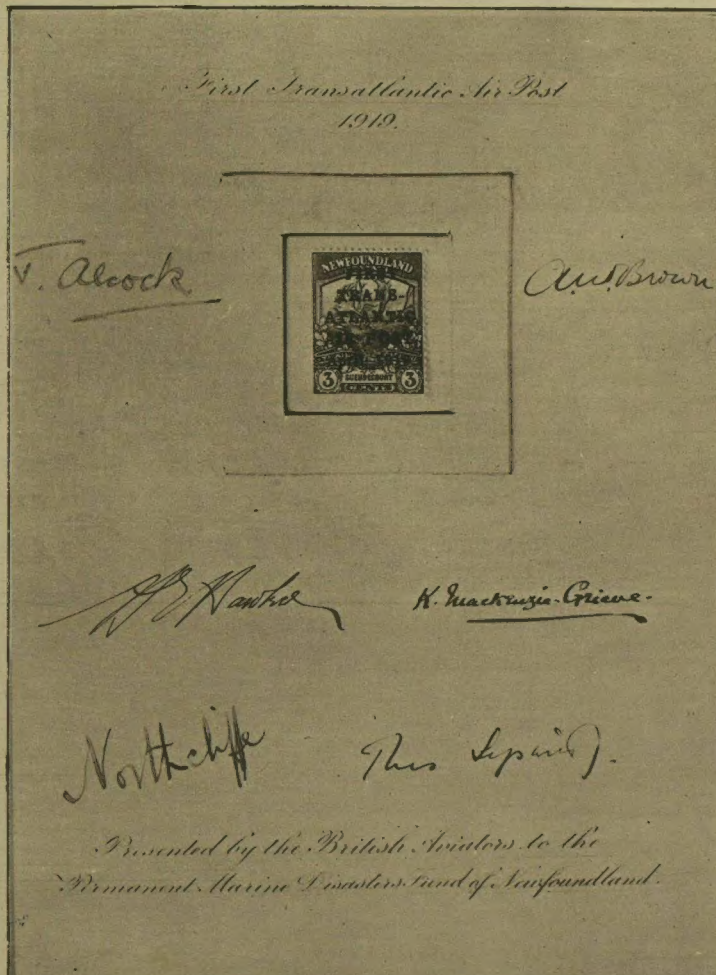 First Transatlantic Air Post
1919.
J. Alcock
A.W. Brown
NEWFOUNDLAND
FIRST
TRANS-
ATLANTIC
AIR POST
APRIL, 1919.
3
3
CENTS
K. Mackenzie-Grieve.
Northcliffe
Thos Lipton
Presented by the British Aviators to the
Permanent Marine Disasters Fund of Newfoundland.